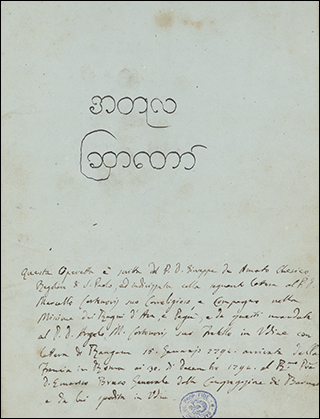 အတုလ
ဆြာတော်
Questa Operetta è scritta dal P. D. Giuseppe da Amato Chierico
Regolare di S. Paolo, ed indirizzata colla seguente lettera al P. D.
Marcello Cortenovis suo Correligioso, e Compagno nella
Missione dei Regni d'Ava, e Pegù e da questi mandata
al P. D. Angelo M. Cortenovis suo Fratello in Udine con
lettera di Rangone 15. Gennajo 1792. arrivata dalla
Francia in Roma ai 30. di Decembre 1794. al
D. Generale della Congregazione di
e da lui spedita in Udine